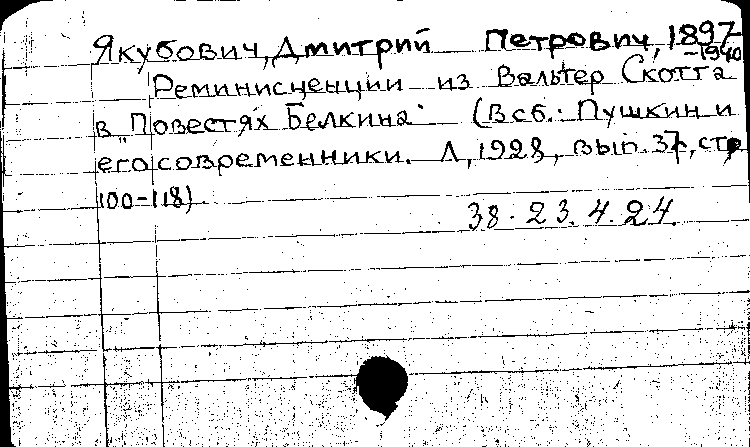 Якубович, Дмитрий Петрович, 1897-
-1940
Реминисценции из Вальтер Скотта
в „Повестях Белкина" (В сб.: Пушкин и
его современники. Л, 1928, вып. 37, стр
100-118)
38.23.4.24.